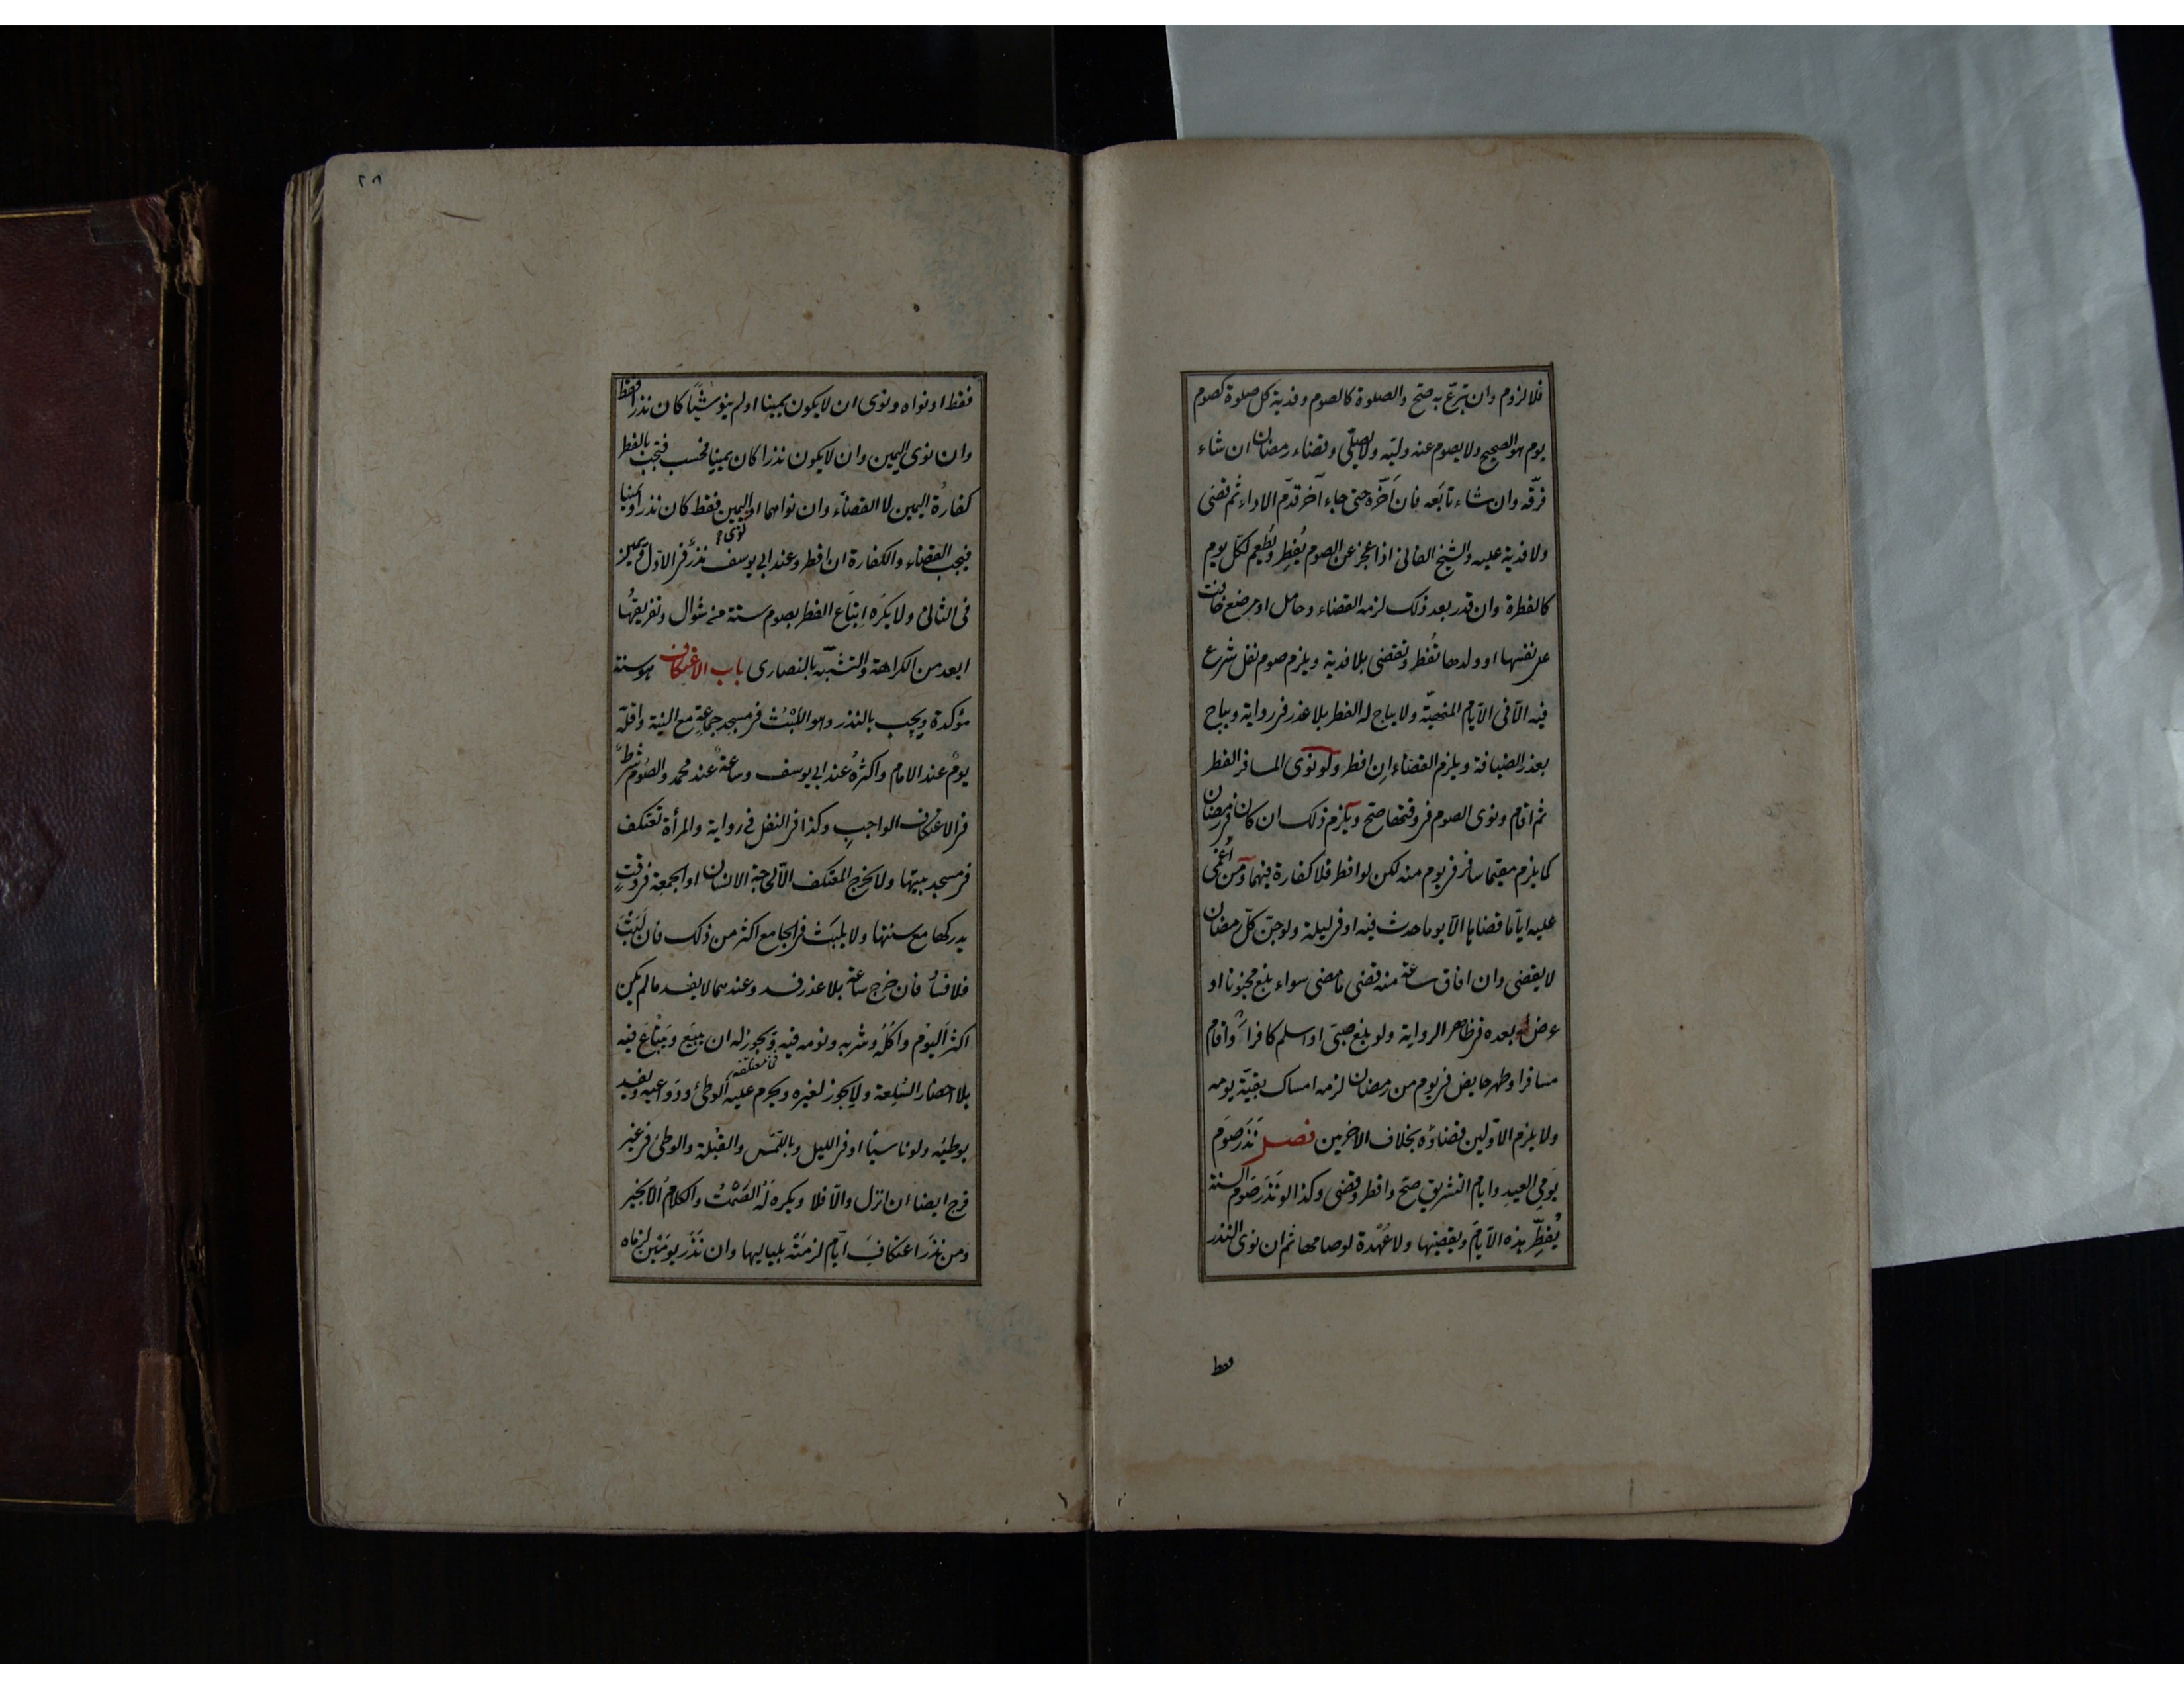 فلا لزوم وان تبرّع به صحّ والصلوة كالصوم وفدية كل صلوة كصوم
يوم هو الصحيح ولا يصوم عنه وليّه ولا يصلّى وقضاء رمضان ان شاء
فرّقه وان شاء تابعه فان اَخّره حتى جاء آخر قدّم الاداء ثم قضى
ولا فدية عليه والشيخ الفانى اذا عجز عن الصوم يُفطِر ويُطعِم لكلّ يوم
كالفطرة وان قدر بعد ذلك لزمه القضاء وحامل او مرضع خافت
على نفسها او ولدها تُفطر وتقضى بلا فدية ويلزم صوم نفل شرع
فيه الاّ فى الايّام المنهيّة ولا يباح له الفطر بلا عذر فى رواية ويباح
بعذر الضيافة ويلزم القضاء اِن افطر ولو نوى المسافر الفطر
ثم اقام ونوى الصوم فى وقتها صحّ ويلزم ذلك ان كان فى رمضان
كما يلزم مقيما سافر فى يوم منه لكن لو افطر فلا كفارة فيهما ومن اُغمى
عليه ايّاما قضاها الاّ يوما حدث فيه او فى ليلة ولو جنّ كلّ رمضان
لا يقضى وان افاق ساعة منه قضى ما مضى سواء بلغ مجنونا او
عرض له بعده فى ظاهر الرواية ولو بلغ صبىّ او اسلم كافر او اقام
مسافر او طهر حايض فى يوم من رمضان لزمه امساك بقيّة يومه
ولا يلزم الاوّلين قضاؤه بخلاف الاخرين فصل نَذَرَ صَوم
يومى العيد وايام التشريق صحّ وافطر وقضى وكذا لو نَذَرَ صَوم السنة
يُفطِّر هذه الايّام ويقضيها ولا عُهدة لو صامها ثم ان نوى النذر
فقط
٢٨
فقط او نواه ونوى ان لا يكون يمينا او لم ينو شيئًا كان نذرا فقط
وان نوى اليمين وان لا يكون نذرا كان يمينا فحسب فتجب بالفطر
كفارة اليمين لا القضاء وان نواهما او اليمين فقط كان نذرا ويمينا
نوى
فيجب القضاء والكفارة ان افطر وعند ابى يوسف نذرٌ فى الاوّل ويمين
فى الثانى ولا يكره اِتباع الفطر بصوم ستة من شوال وتفريقُها
ابعد من الكراهة والتشبّه بالنصارى باب الاعتكاف هو سنة
مؤكدة ويجب بالنذر وهو اللبْثُ فى مسجد جماعةٍ مع النية واقلّه
يومٌ عند الامام واكثرهُ عند ابى يوسف وساعةٌ عند محمد والصوم شرطٌ
فى الاعتكاف الواجبِ وكذا فى النفل فى رواية والمرأة تعتكف
فى مسجد بيتها ولا يخرج المعتكف الاّ لحاجة الانسان او الجمعة فى وقتٍ
يدركها مع سنتها ولا يلبَث فى الجامع اكثر من ذلك فان لَبِثَ
فلا فسادَ فان خرج ساعة بلا عذر فسد وعندهما لا يفسد ما لم يكن
اكثرَ اليوم واَكلُه وشربه ونومه فيه ويجوز له ان يبيع ويبتاعَ فيه
بلا احضار السِّلعة ولا يجوز لغيره ويحرم عليه الوطئ ودواعيه ويفسد
بوطئه ولو ناسيا او فى الليل وباللّمس والقُبلة والوطئ فى غير
فرج ايضا ان انزل والاّ فلا ويكره لهُ الصَّمْتُ والكلامُ الاّ بخير
ومن نذَرَ اعتكافَ ايّامٍ لزمَتْه بلياليها وان نَذَر يومَيْن لزماه